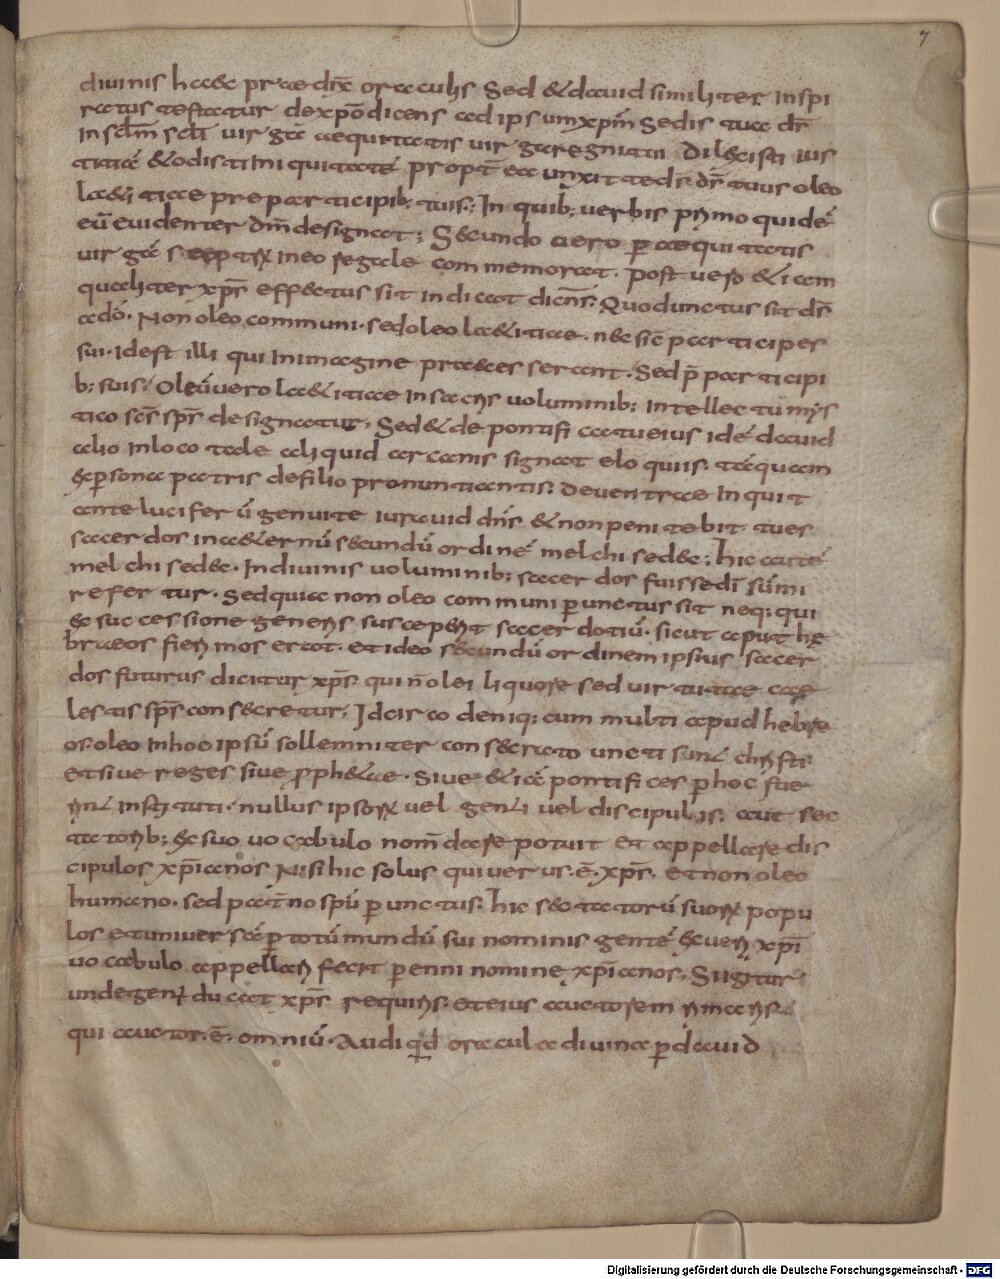 7
diuinis haec praedix̄ oraculis Sed & dauid similiter inspi
ratus testatur de xp̄o dicens ad ipsum xp̄m Sedis tua dr̄
in sc̄lm sc̄li uirga aequitatis uirga regni tui Dilexisti ius
titiā & odisti iniquitatē propt̄ ea unxit te ds̄ ds̄ tuus oleo
laetitiae prae participib; tuis; In quib; uerbis primo quidē
eū euidenter dm̄ designat; Secundo uero p̄ aequitatis
uirgā sceptrū in eo regale commemorat. Post uero & iam
qualiter xp̄s effectus sit indicat dicens. Quod unctus sit ds̄
a dō. Non oleo communi. sed oleo laetitiae. nec sic̄ participes
sui. Idest illi qui in imagine praecesserant. Sed p̄ participi
b; suis; Oleū uero laetitiae in sacris uoluminib; intellectu mys
tico sc̄s sp̄s designatur; Sed & de pontificatu eius idē dauid
alio in loco tale aliquid arcanis signat eloquiis. taquam
ex persona patris de filio pronuntiantis. De uentrae inquit
ante luciferū genui te iurauid dn̄s & non penitebit. tu es
sacerdos in aeternū secundū ordinē melchisedec; hic autē
melchisedec. In diuinis uoluminib; sacerdos fuisse dī sūmi
refertur. Sed quia non oleo communi p̄unctus sit neq; qui
ex successione generis susceperit sacerdotiū. sicut aput he
braeos fieri mos erat. et ideo secundū ordinem ipsius sacer
dos futurus dicitur xp̄s. qui n̄ olei liquore sed uirtutae cae
lestis sp̄s consecretur; Idcirco deniq; cum multi apud hebre
os. oleo in hoc ipsū sollemniter consecrato uncti sunt christi
et siue reges siue prophetae. Siue & iā pontifices p̄ hoc fue
rint instituti. nullus ipsorū uel genti uel discipulis. aut sec
tatorib; ex suo uocabulo nom̄ dare potuit et appellare dis
cipulos xp̄ianos Nisi hic solus qui uerus. ē. xp̄s. et non oleo
humano. sed pat̄no spū p̄unctus. hic sectatorū suorū popu
los et uniuersā p̄ totū mundū sui nominis gentē ex ueri xp̄i
uocabulo appellari fecit p̄enni nomine xp̄ianos. Si igitur
unde genī ducat xp̄s requiris. et eius auctorem rimaris.
qui auctor. ē. omniū. Audi qd̄ oracula diuina p̄ dauid
Digitalisierung gefördert durch die Deutsche Forschungsgemeinschaft - DFG